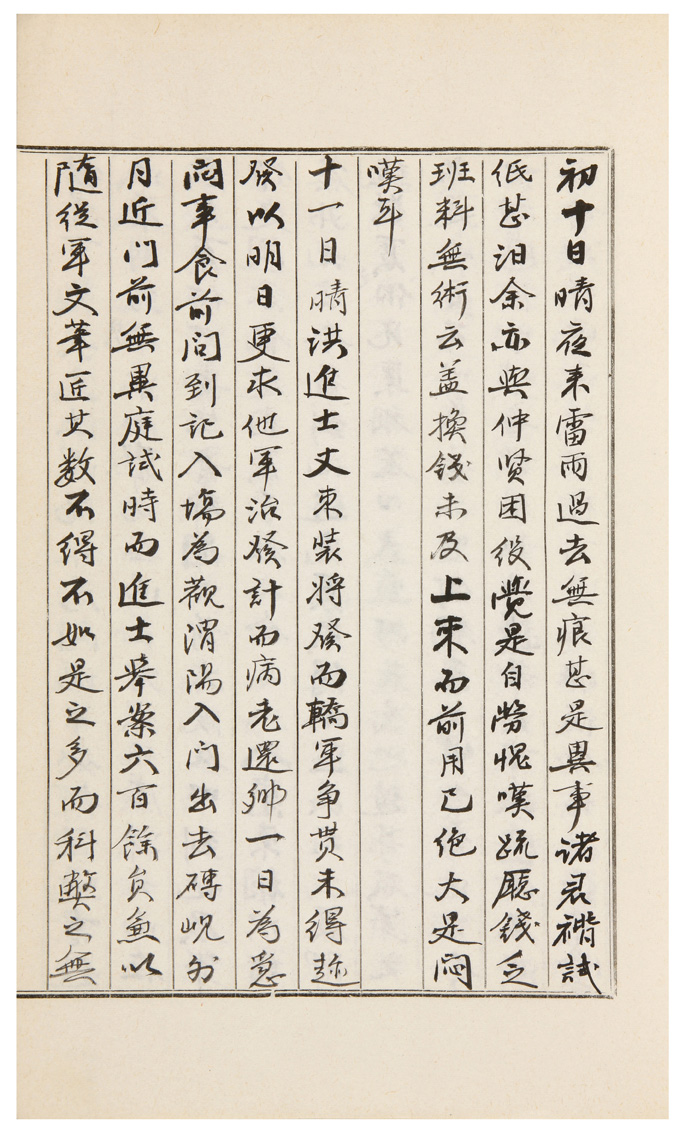 初十日晴夜来雷雨過去無痕甚是異事諸君褙試
紙甚汨余亦與仲贤困役覺是自勞愧嘆疏廳錢乏
班料無術云盖換錢未及上來而前用已绝大是悶
嘆耳
十一日晴洪進士丈束装将發而轎軍争贳未得趂
發以明日更求他軍治發計而病老還鄉一日為急
悶事食前問到記入塲為觀渭陽入門出去磚峴外
月近門前無異庭試時而進士舉案六百餘負兼以
随從軍文筆匠其数不得不如是之多而科弊之無